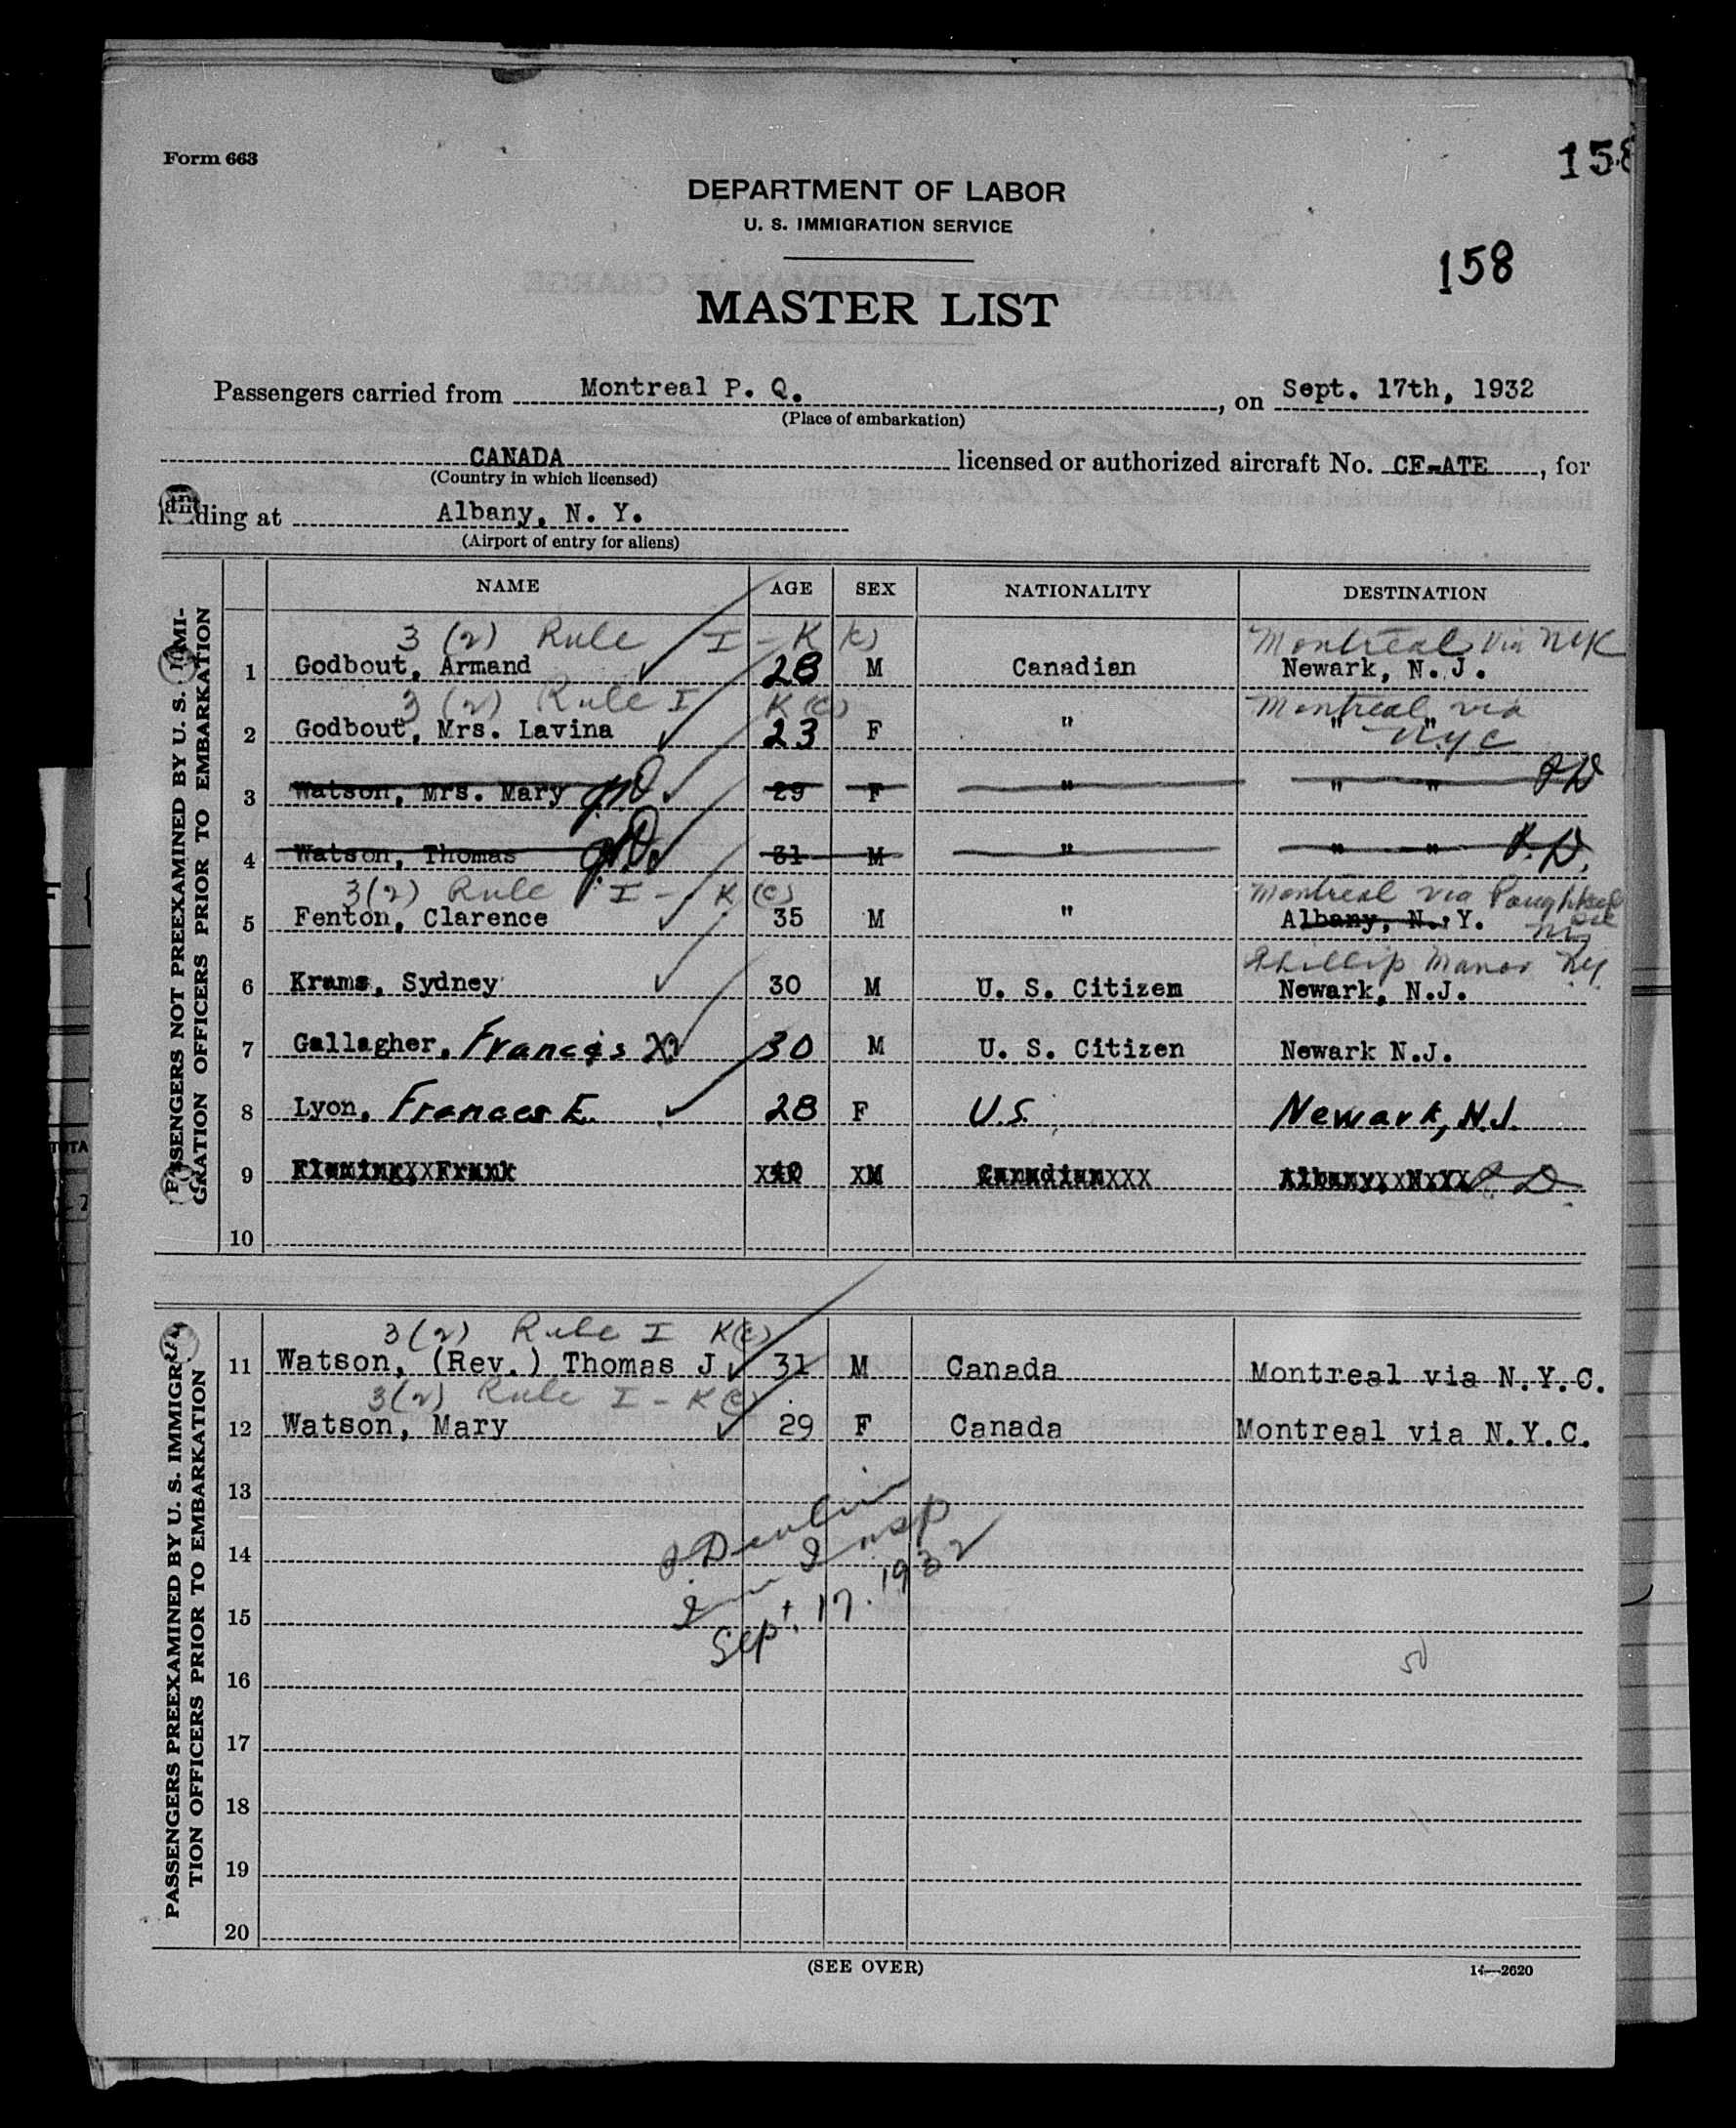 Form 663
158
DEPARTMENT OF LABOR
U. S. IMMIGRATION SERVICE
158
MASTER LIST
Passengers carried from Montreal P. Q. , on Sept. 17th, 1932
(Place of embarkation)
CANADA licensed or authorized aircraft No. CF-ATE , for
(Country in which licensed)
landing at Albany, N. Y.
(Airport of entry for aliens)
PASSENGERS NOT PREEXAMINED BY U. S. IMMI-
GRATION OFFICERS PRIOR TO EMBARKATION
NAME AGE SEX NATIONALITY DESTINATION
3 (2) Rule I - K (c) Montreal via NYC
1 Godbout, Armand 28 M Canadian Newark, N. J.
3 (2) Rule I K (c) Montreal via
2 Godbout, Mrs. Lavina 23 F " " "
N.Y.C
3 Watson, Mrs. Mary 29 F " " " PD
4 Watson, Thomas 31 M " " " P.D.
3(2) Rule I - K (c) Montreal via Poughkeepsie
NY
5 Fenton, Clarence 35 M " Albany, N. Y.
Phillip Manor NY.
6 Krams, Sydney 30 M U. S. Citizen Newark, N.J.
7 Gallagher, Francis X 30 M U. S. Citizen Newark N.J.
8 Lyon, Frances E. 28 F U.S. Newark, N.J.
9 Fleming,XXFrank X40 XM CanadianXXX Albany,XXNXYX P D.
10
PASSENGERS PREEXAMINED BY U. S. IMMIGRA-
TION OFFICERS PRIOR TO EMBARKATION
3(2) Rule I K(c)
11 Watson, (Rev.) Thomas J 31 M Canada Montreal via N.Y.C.
3(2) Rule I - K(c)
12 Watson, Mary 29 F Canada Montreal via N.Y.C.
13
14
15
P. Devlin
Imm Insp
Sept. 17. 1932
16
17
18
19
20
(SEE OVER)
14—2620